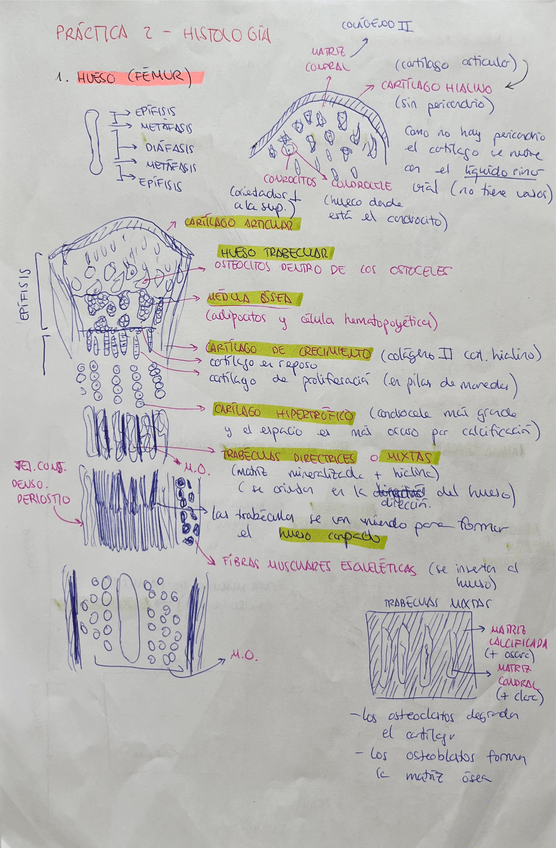 PRÁCTICA 2 - HISTOLOGÍA
COLÁGENO II
1. HUESO (FÉMUR)
MATRIZ
CONDRAL
(cartílago articular)
CARTÍLAGO HIALINO
(sin pericondrio)
Como no hay pericondrio
el cartílago se nutre
con el líquido sino-
vial (no tiene vasos)
EPÍFISIS
METÁFASIS
DIÁFASIS
METÁFISIS
EPÍFISIS
CONDROCITOS
a la sup.)
CONDROCELE
(hueco donde
está el condrocito)
CARTÍLAGO ARTICULAR
HUESO TRABECULAR
OSTEOCITOS DENTRO DE LOS OSTOCELES
EPÍFISIS
MÉDULA ÓSEA
(adipocitos y célula hematopoyética)
CARTÍLAGO DE CRECIMIENTO (colágeno II cart. hialino)
cartílago en reposo
cartílago de proliferación (en pilas de monedas)
CARTÍLAGO HIPERTRÓFICO (condrocele más grande
y el espacio es más oscuro por calcificación)
TRABÉCULAS DIRECTRICES o MIXTAS
M.O.
(matriz mineralizada + hialina)
(se orientan en la dirección del hueso)
TEJ. CONJ.
DENSO.
PERIOSTIO
las trabéculas se van uniendo para formar
el hueso compacto
FIBRAS MUSCULARES ESQUELÉTICAS (se insertan al
hueso)
M.O.
TRABÉCULAS MIXTAS
MATRIZ
CALCIFICADA
(+ oscura)
MATRIZ
CONDRAL
(+ clara)
- Los osteoclatos degradan
el cartílago
- Los osteoblatos forman
la matriz ósea